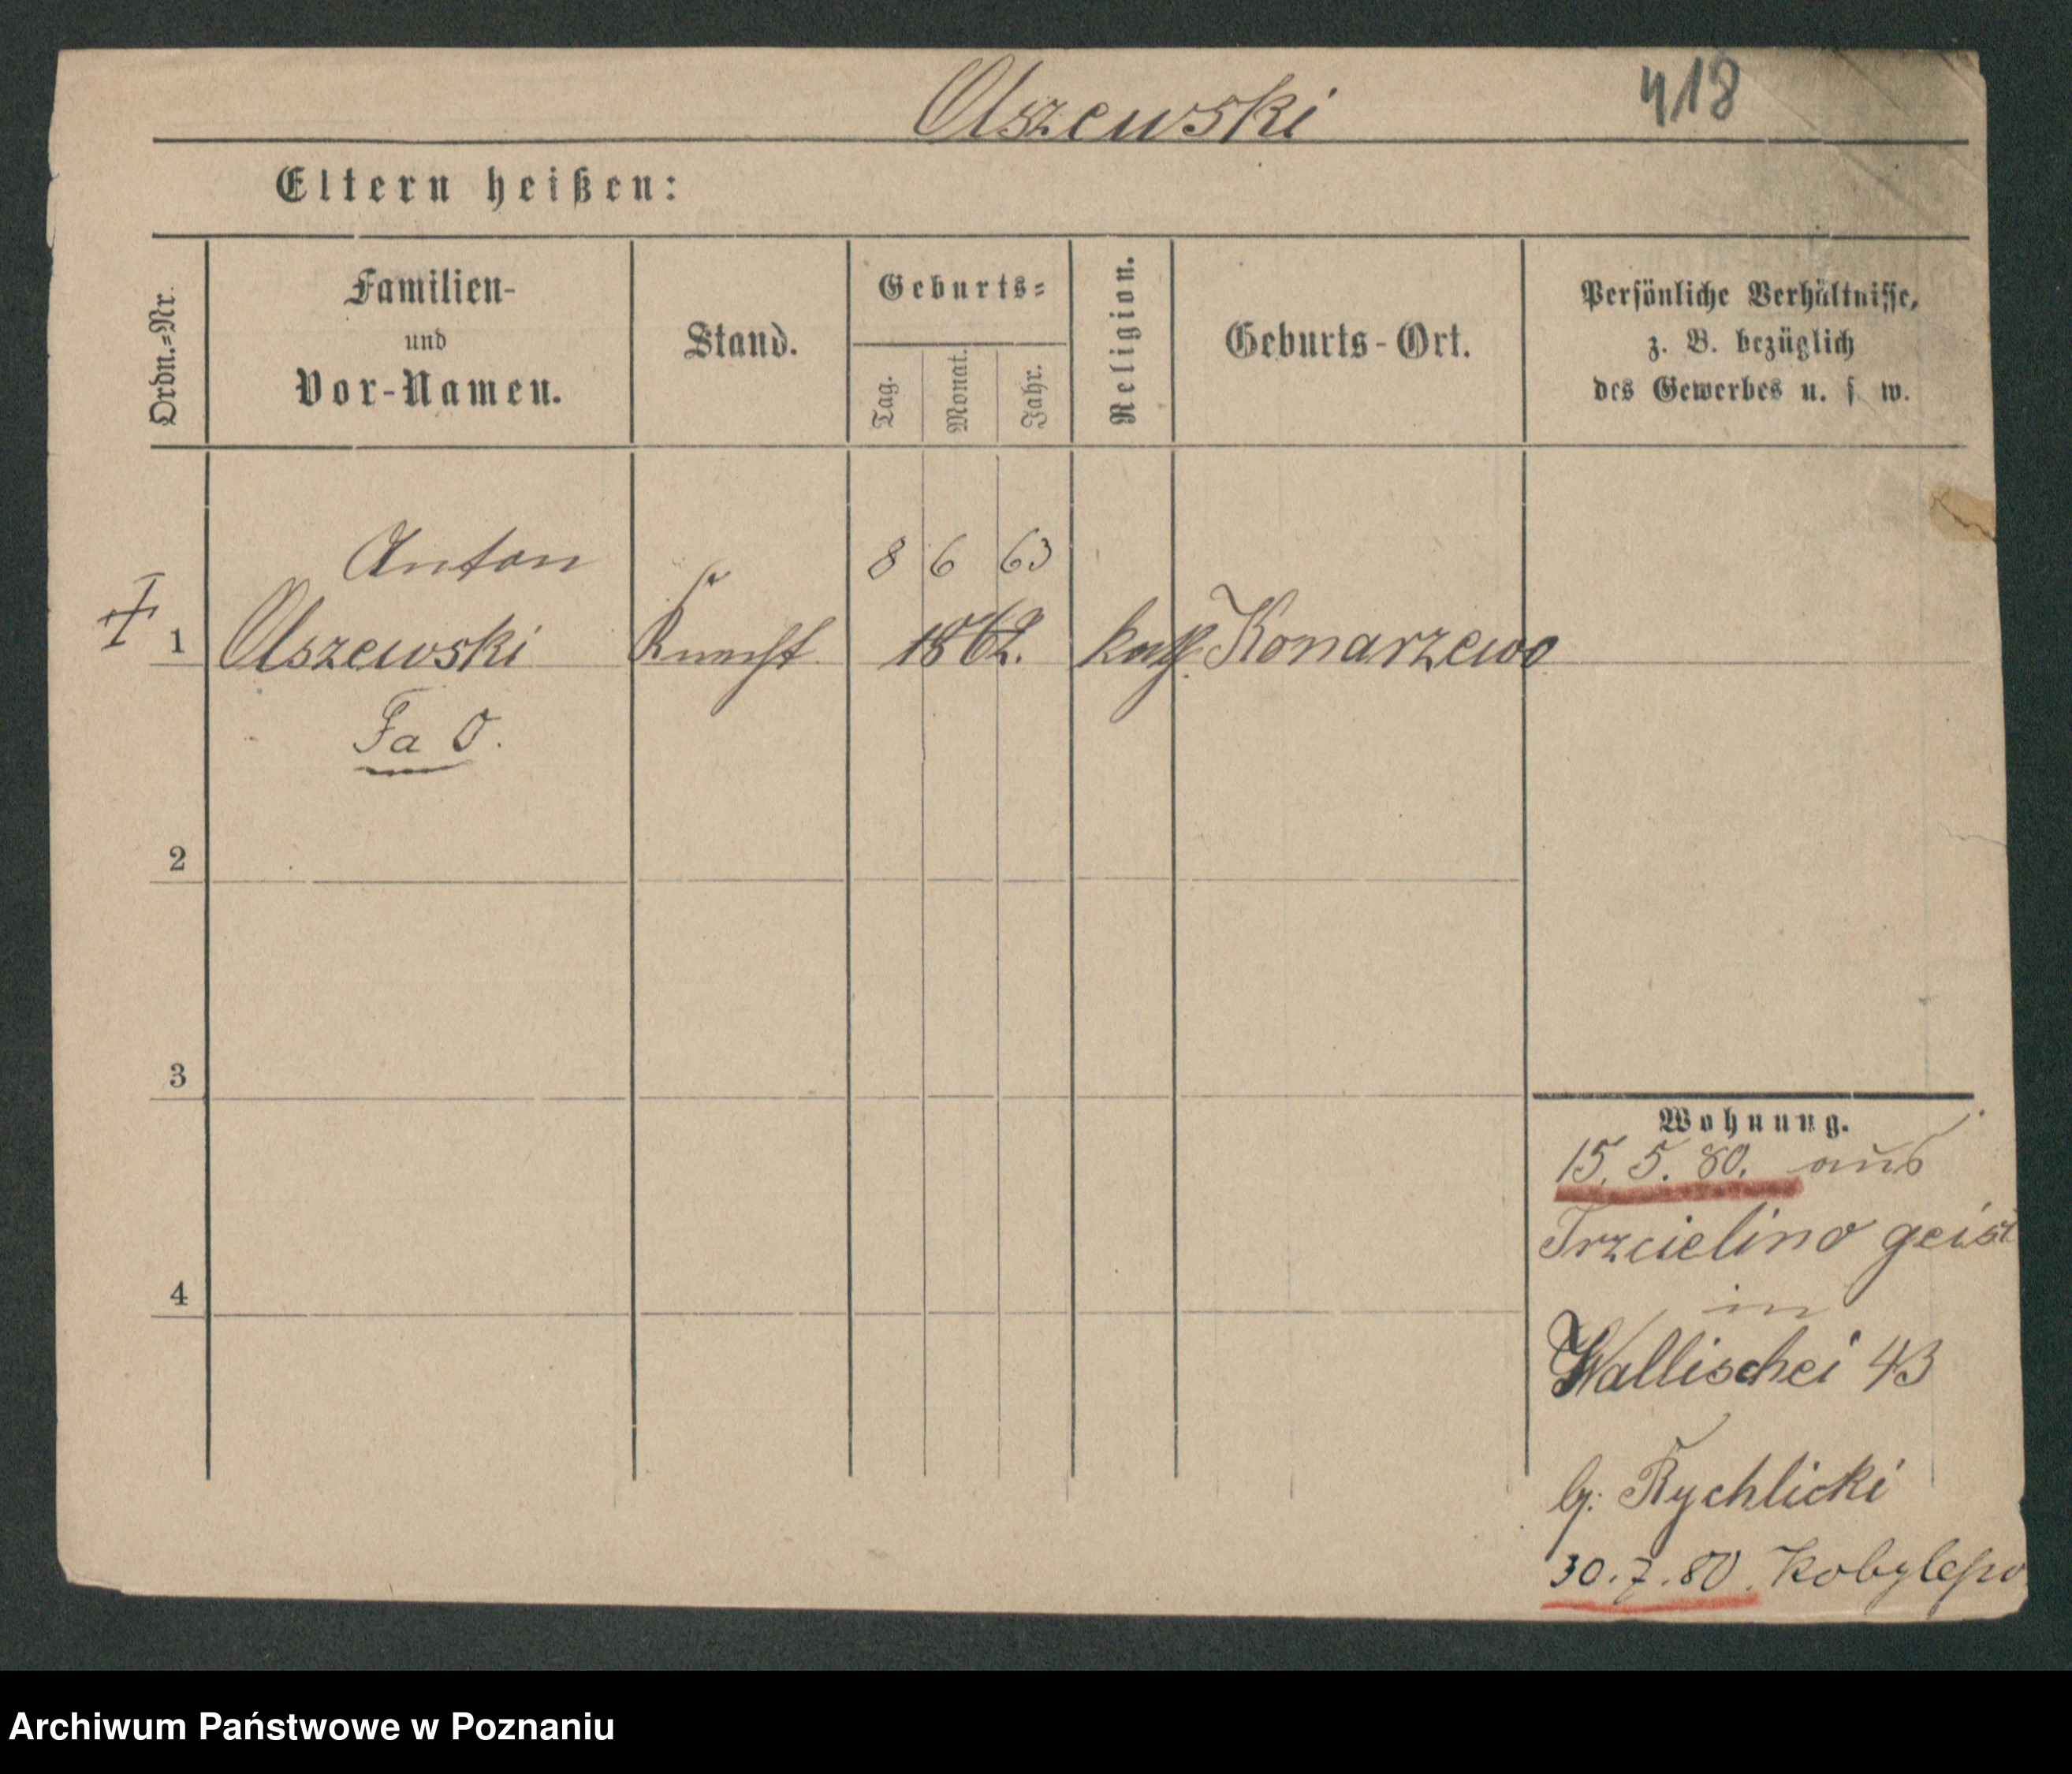 Olszewski 418
Eltern heißen:
Ordn.=Nr.
Familien-
und
Vor-Namen.
Stand.
Geburts=
Tag.
Monat.
Jahr.
Religion.
Geburts-Ort.
Persönliche Verhältnisse,
z. B. bezüglich
des Gewerbes u. s w.
Anton 8 6 63
1 Olszewski Knecht 1862. kath. Konarzewo
Fa O.
2
3
4
Wohnung.
15. 5. 80. aus
Trzcielino
in
Wallischei 43
b. Rychlicki
30. 7. 80. Kobylepo
Archiwum Państwowe w Poznaniu